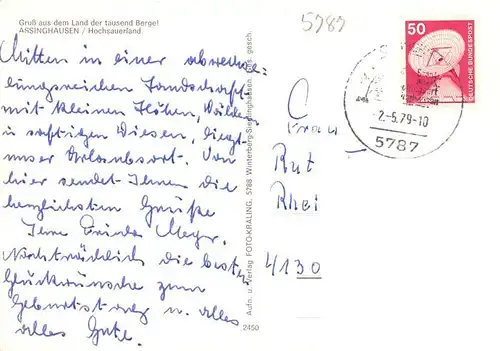 Gruß aus dem Land der tausend Berge!
ASSINGHAUSEN / Hochsauerland
Mitten in einer abwechs-
lungsreichen Landschaft
mit kleinen Höhen, Wäldern
u. saftigen Wiesen, liegt
unser Urlaubsort. Von
hier sendet Ihnen die
herzlichsten Grüße
Ihre Meyer.
Nachträglich die besten
Glückwünsche zum
Geburtstag u. alles
alles Gute.
Aufn. u. Verlag FOTO-KRALING, 5788 Winterberg-Siedlinghausen, Ges. gesch.
2450
5787
50
DEUTSCHE BUNDESPOST
-2.-5.79-10
5787
Frau
Rut
Rhei
4130